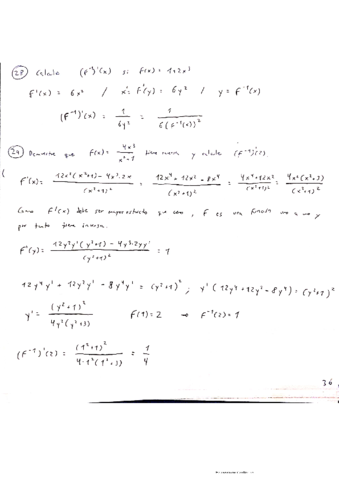 (23) Calcule (f⁻¹)'(x) si f(x) = 1+2x³
f'(x) = 6x² / x' = f'(y) = 6y² / y = f⁻¹(x)
(f⁻¹)'(x) = 1/(6y²) = 1/(6(f⁻¹(x))²)
(24) Demuestre que f(x) = 4x³/(x²+1) tiene inversa y calcule (f⁻¹)'(2).
f'(x) = (12x²(x²+1) - 4x³·2x)/(x²+1)² = (12x⁴ + 12x² - 8x⁴)/(x²+1)² = (4x⁴+12x²)/(x²+1)² = 4x²(x²+3)/(x²+1)²
Como f'(x) debe ser mayor que cero, f es una función uno a uno y
por tanto tiene inversa.
f'(y) = (12y²y'(y²+1) - 4y³·2yy')/(y²+1)² = 1
12y⁴y' + 12y²y' - 8y⁴y' = (y²+1)² ; y'(12y⁴+12y²-8y⁴) = (y²+1)²
y' = (y²+1)²/(4y²(y²+3)) f(1) = 2 ⇒ f⁻¹(2) = 1
(f⁻¹)'(2) = (1²+1)²/(4·1²(1²+3)) = 1/4
36